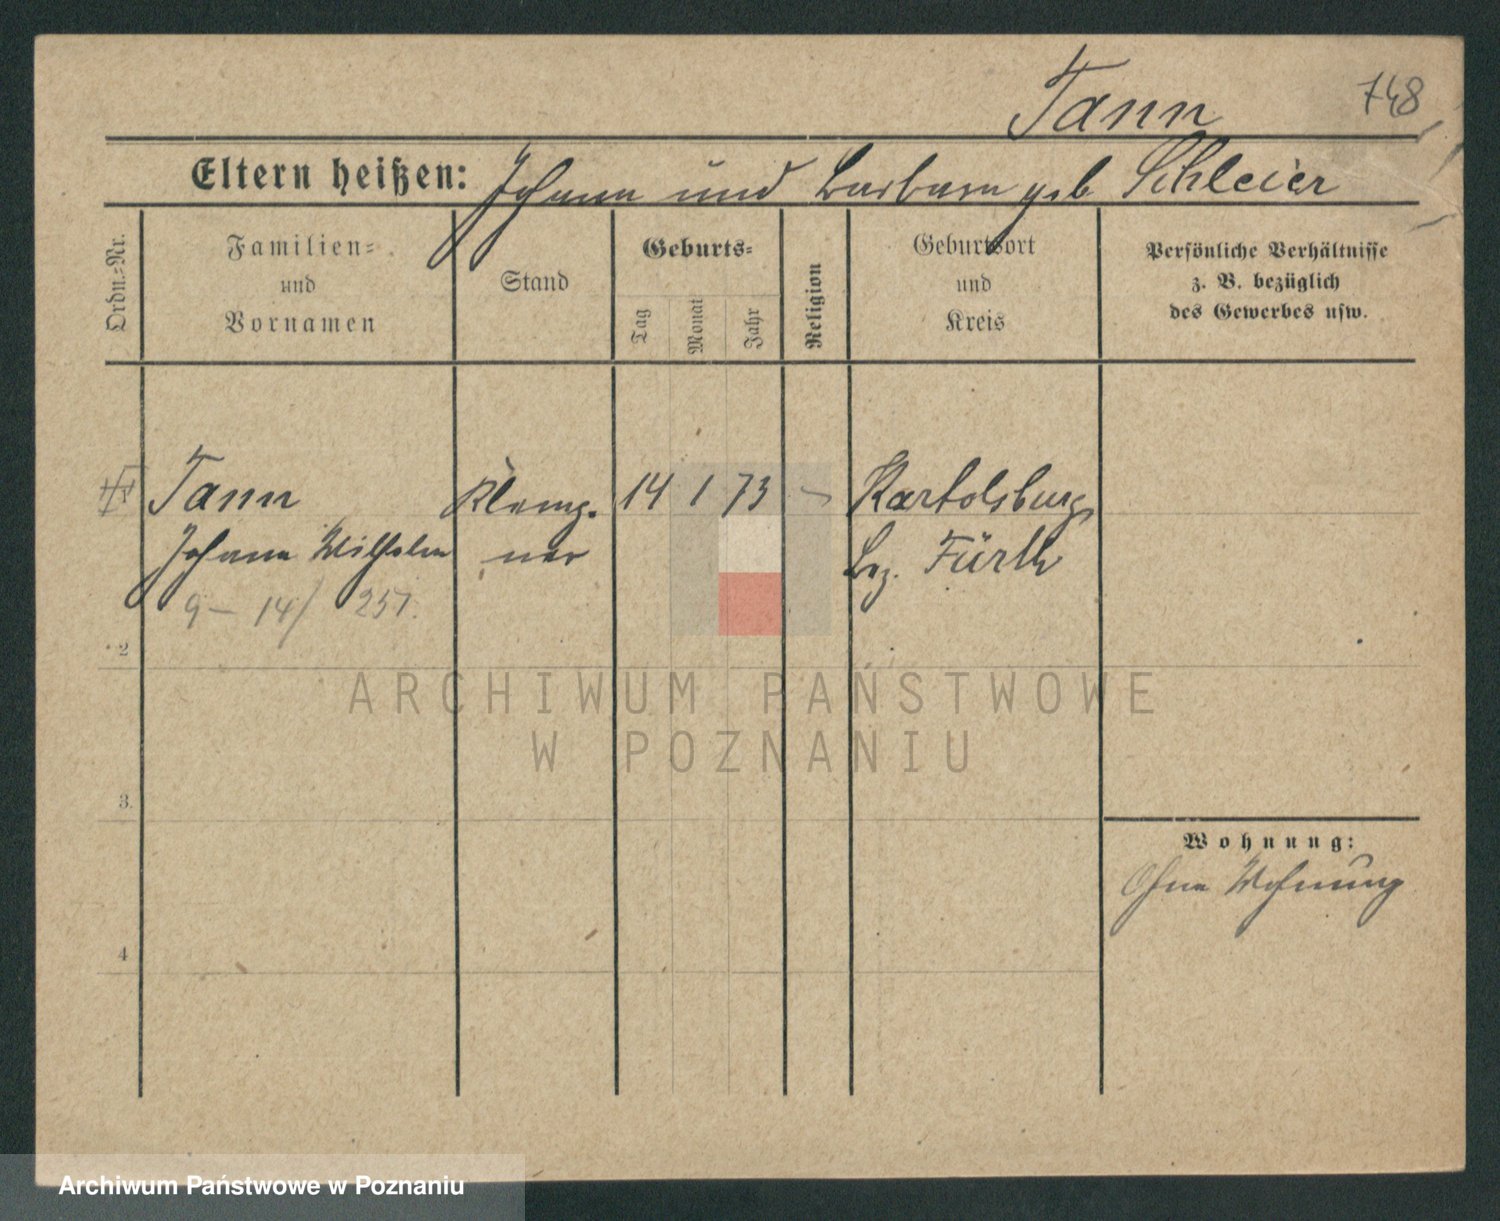 Tann
748
Eltern heißen: Johann und Barbara geb Schleier
Ordn.=Nr.
Familien=
und
Vornamen
Stand
Geburts=
Tag
Monat
Jahr
Religion
Geburtsort
und
Kreis
Persönliche Verhältnisse
z. B. bezüglich
des Gewerbes usw.
Tann
Klemp-
14 1 73
Kartolsburg
Johann Wilhelm
ner
Bez. Fürth
9 – 14/ 257.
2
3.
4
Wohnung:
Ohne Wohnung
ARCHIWUM PAŃSTWOWE
W POZNANIU
Archiwum Państwowe w Poznaniu